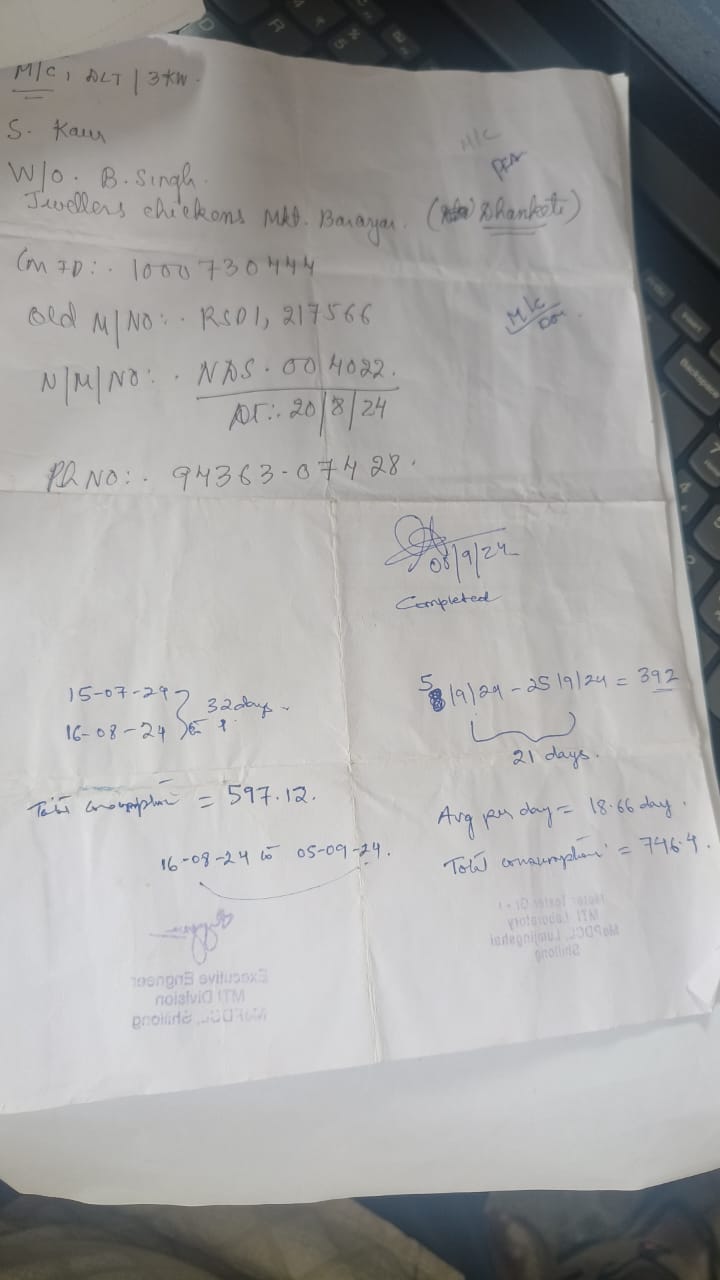 M/C, DLT | 3 KW.
S. Kaur
W/O. B. Singh.
Jwellers chickens Mkt. Barayar. (Dhanketi)
M/C
Con ID:. 1000730444
Old M/NO:. RSD1, 217566
M/C
N/M/NO:. NDS. 004022.
DT:. 20/8/24
Ph NO:. 94363-07428.
05/9/24
Completed
15-07-24
16-08-24
32 days
Total consumption = 597.12.
16-08-24 to 05-09-24.
5/9/24 - 25/9/24 = 392
21 days.
Avg per day = 18.66 day.
Total consumption = 746.4.
Executive Engineer
MTI Division
MePDCL, Shillong
Meter Tester Gr - I
MTI Laboratory
MePDCL, Lumjingshai
Shillong